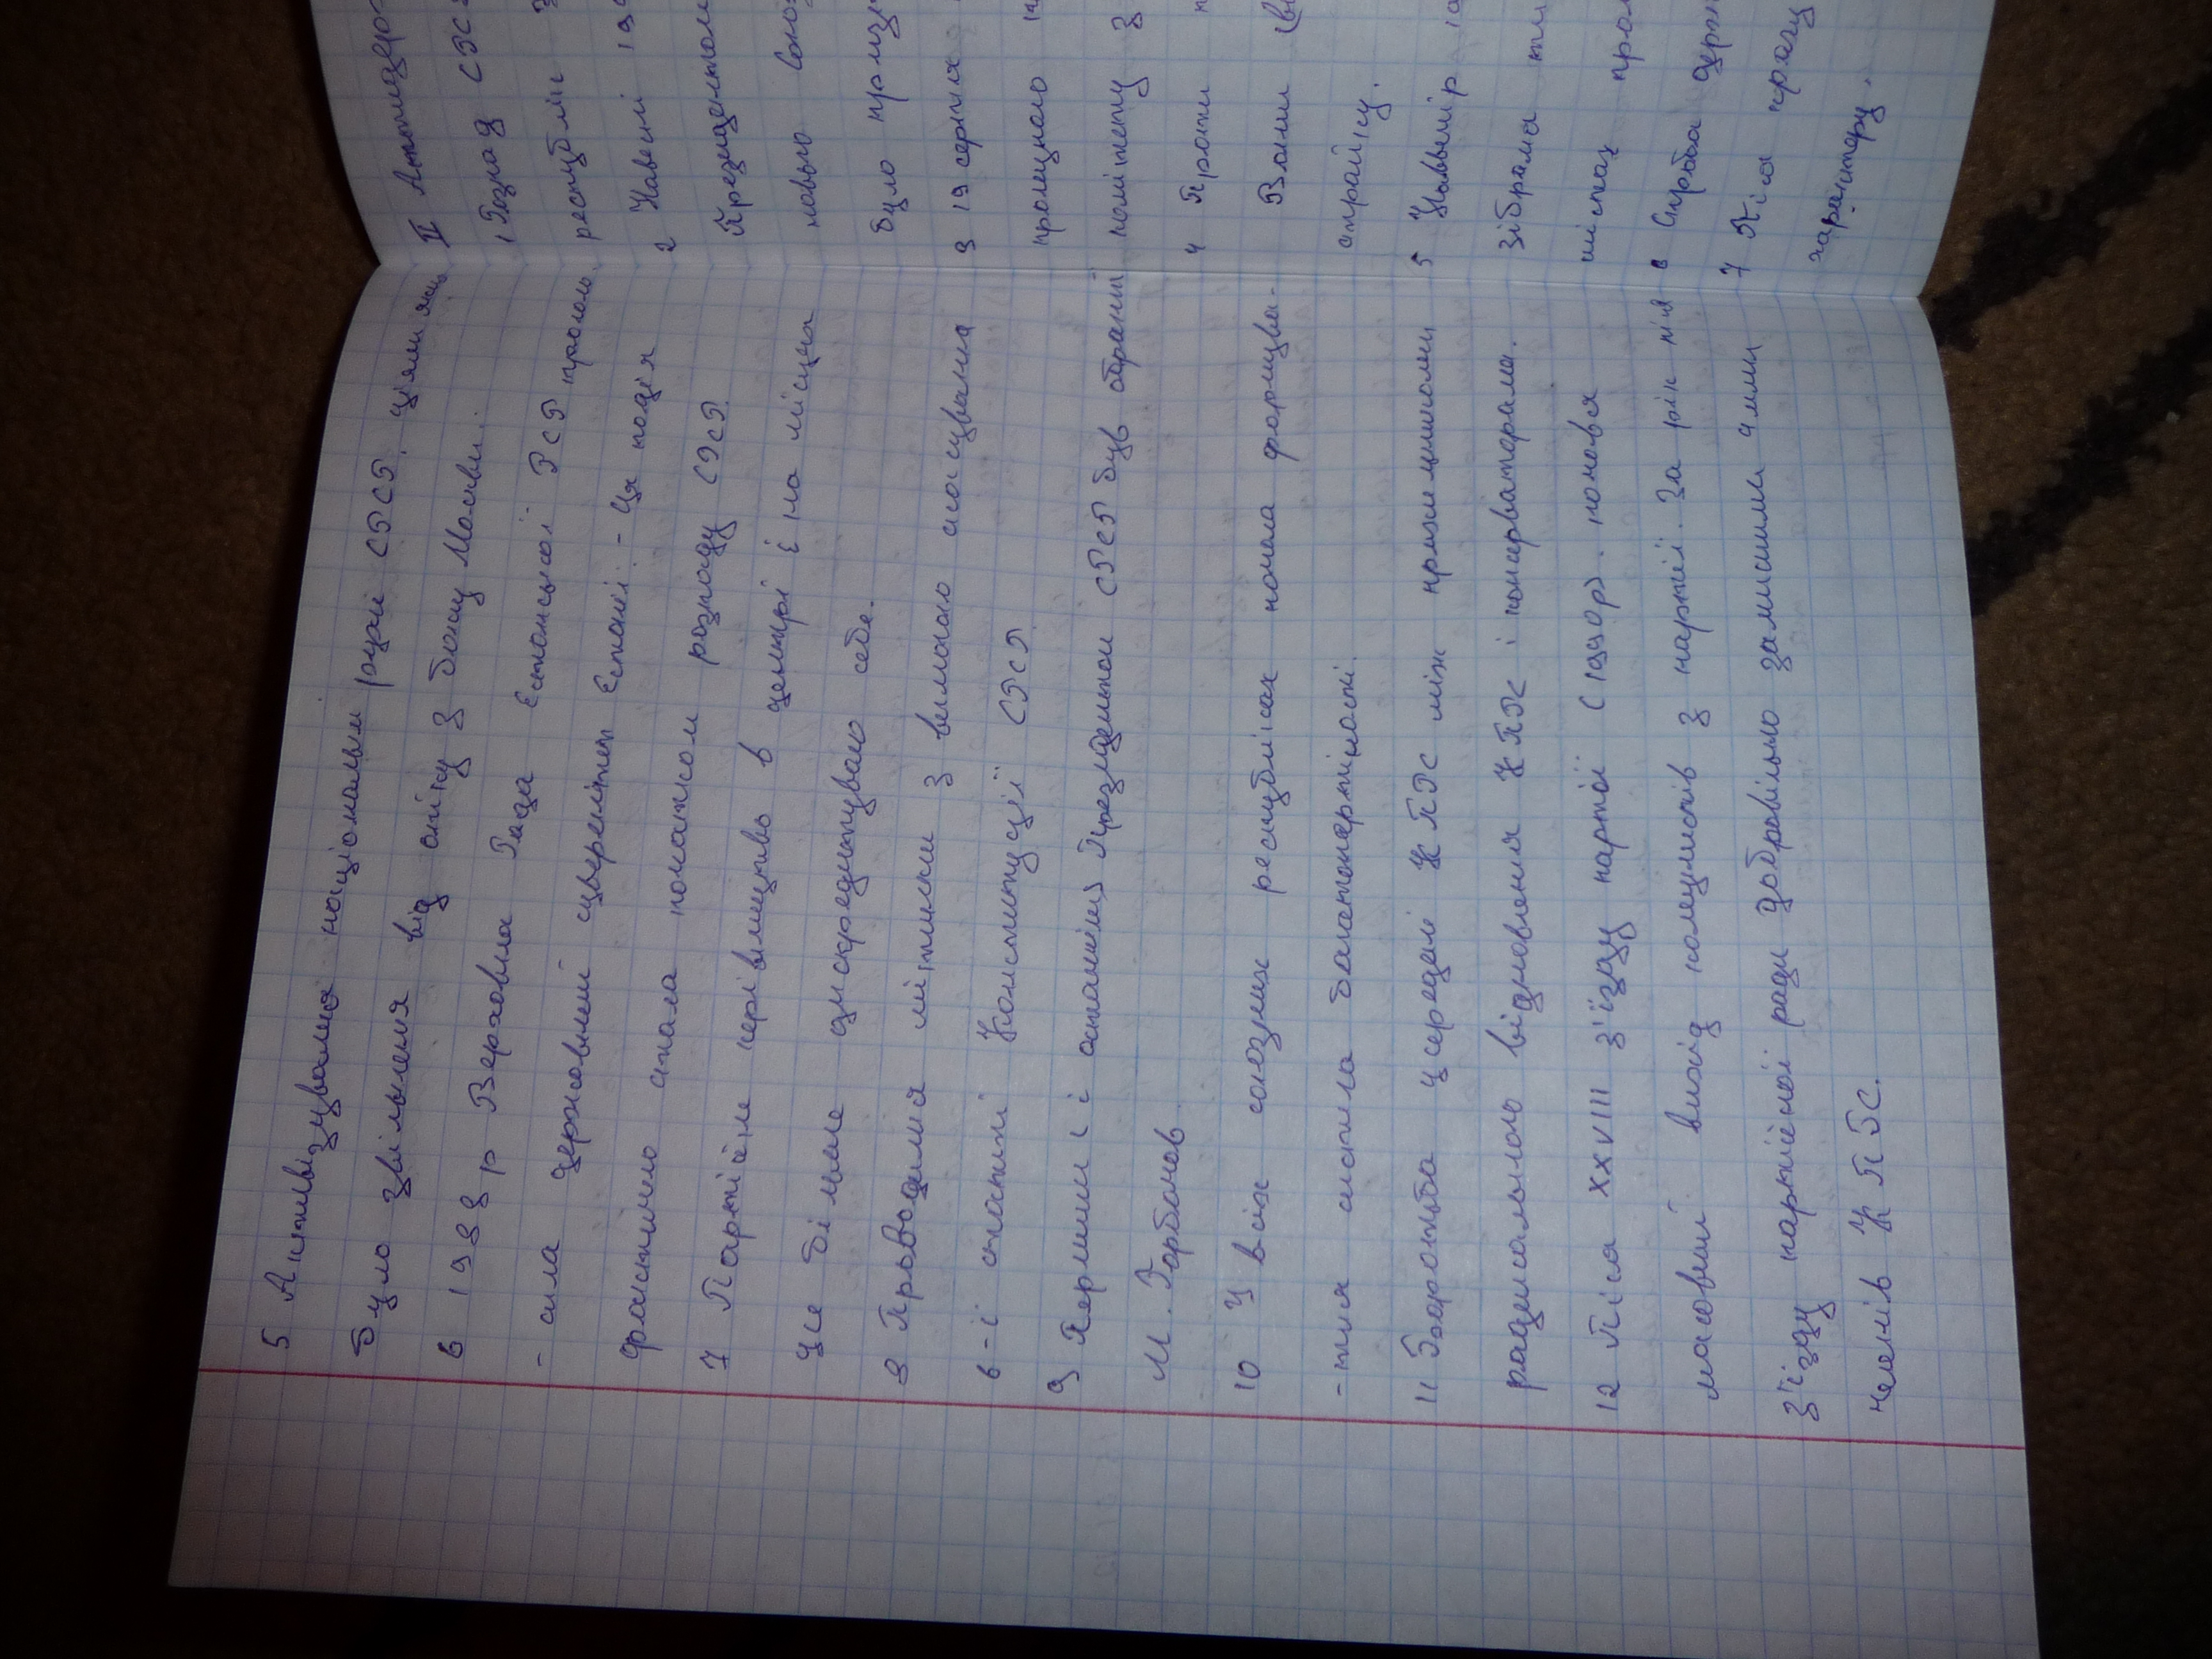 5 Активізувались національні рухи СРСР. ціллю яких
було звільнення від опіку з боку Москви.
6 1988 р Верховна Рада Естонської РСР проголо
- сила державний суверенітет Естонії. - Ця подія
фактично стала початком розпаду СРСР.
7 Партійне керівництво в центрі і на місцях
усе більше дискредитувало себе.
8 Проводилися мітинги з вимогою скасування
6-ї статті Конституції СРСР
9 Першим і останнім Президентом СРСР був обраний
М. Горбачов.
10 У всіх союзних республіках почала формува-
-тися система багатопартійності.
11 Боротьба усередині КПРС між прихильниками
радикального відновлення КПРС і консерваторами.
12 Після XXVIII з'їзду партії (1990р). почався
масовий вихід комуністів з партії. За рік після
з'їзду партійної ради добровільно залишили 4 млн
членів КПРС.
II
1 Розпад СРСР
республік з
2 Навесні 19
Президентом
нового
було
3 19 серпня
комітету з
4 Проти
страйку.
5
зібрала
містах
6 Спроба держ
7 Після
характеру.